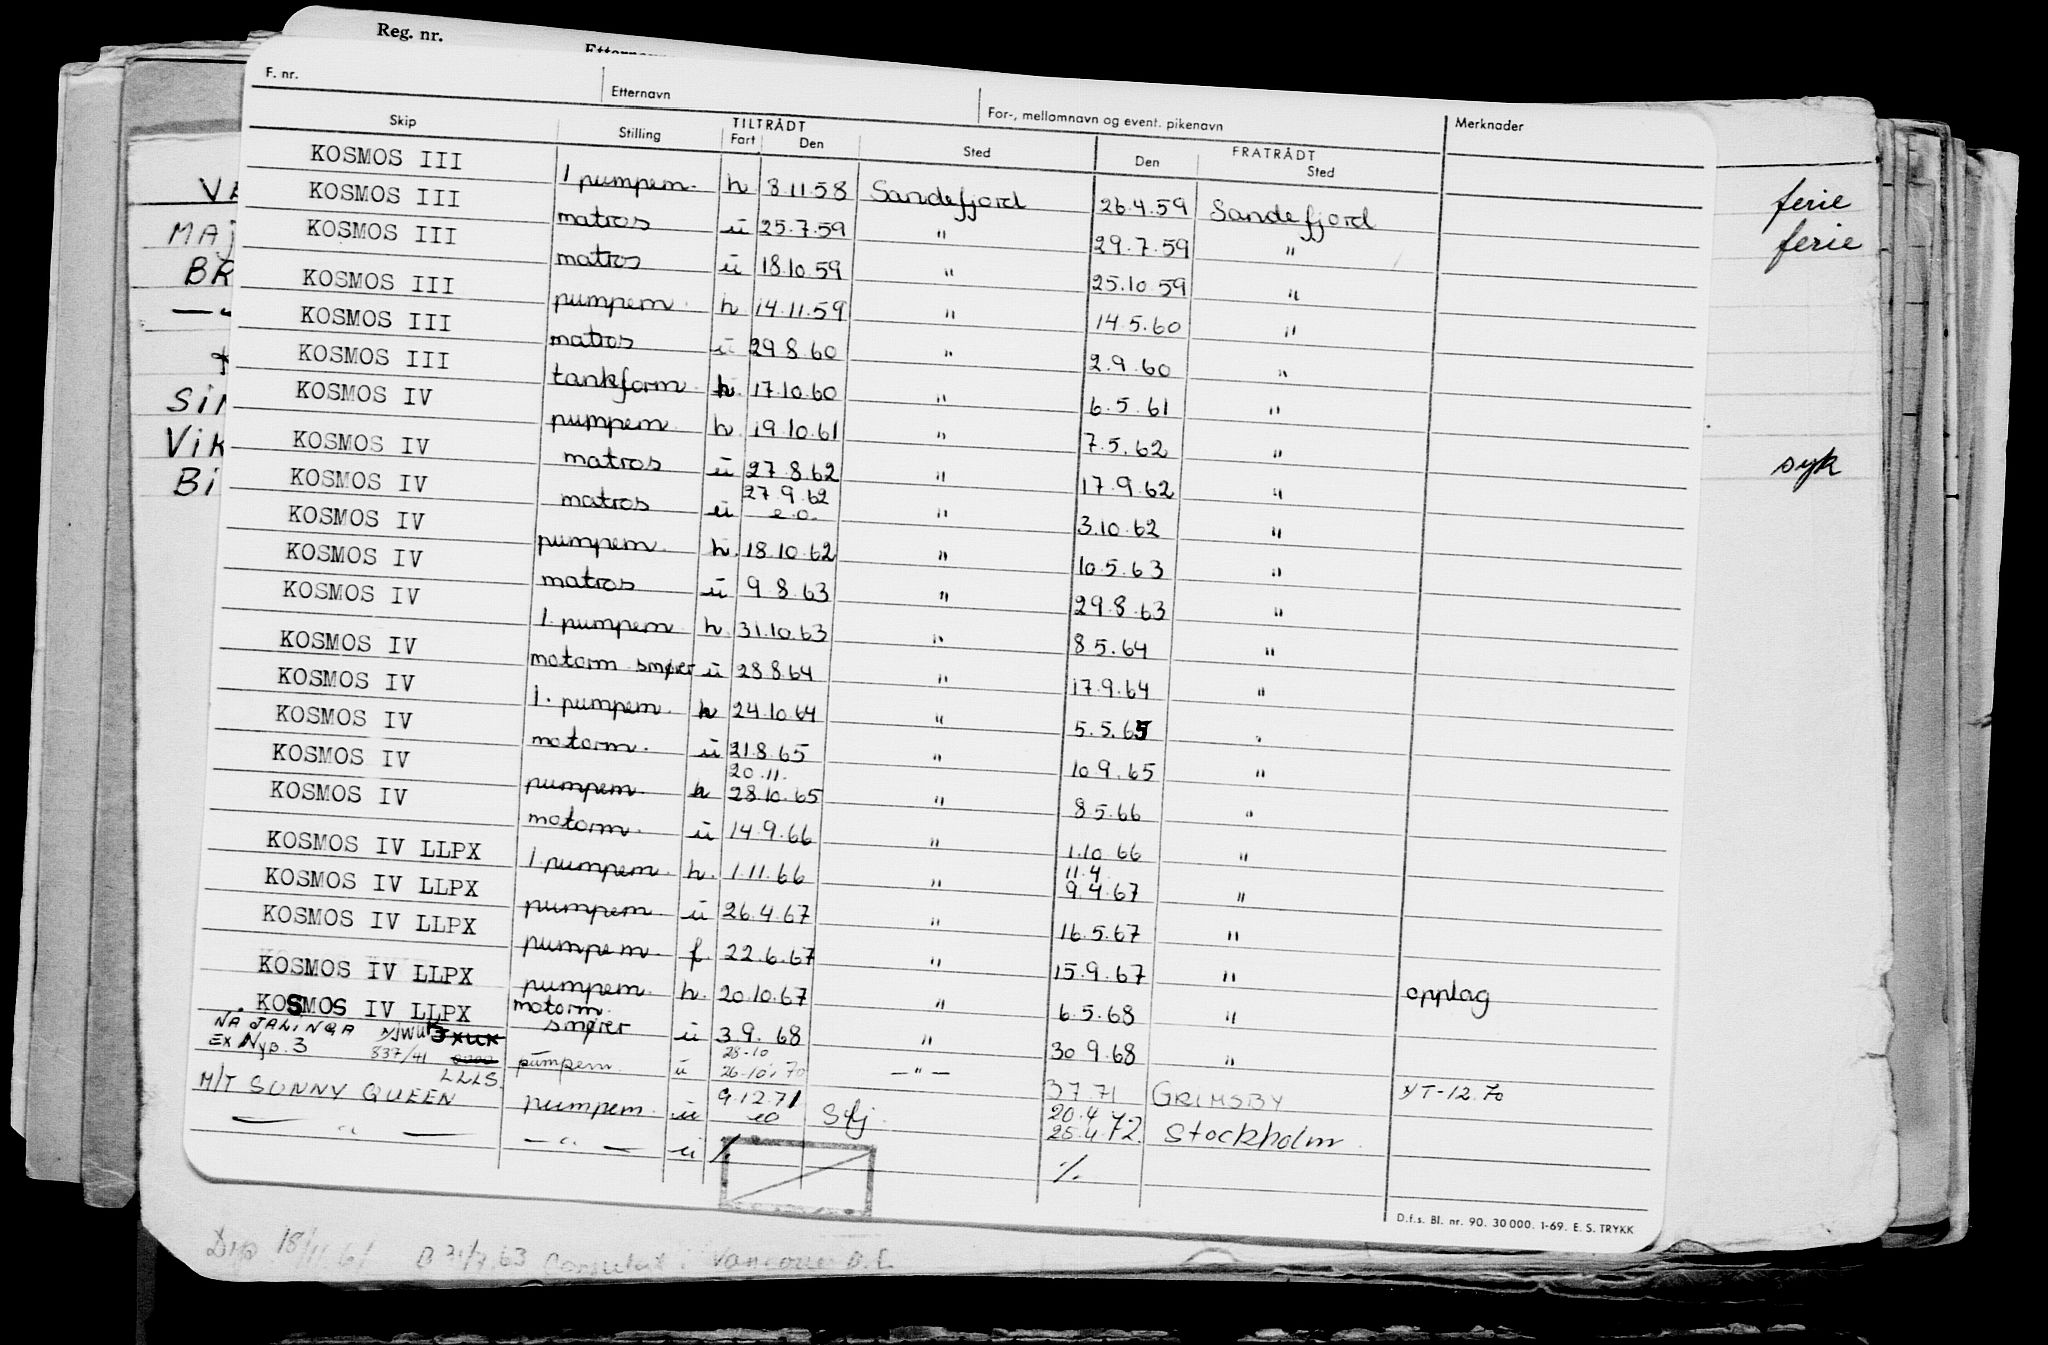 Reg. nr.
F. nr. Etternavn For-, mellomnavn og event. pikenavn Merknader
Skip Stilling TILTRÅDT Fart Den Sted FRATRÅDT Den Sted
KOSMOS III 1 pumpem. h 3.11.58 Sandefjord 26.4.59 Sandefjord
KOSMOS III matros ü 25.7.59 " 29.7.59 "
KOSMOS III matros ü 18.10.59 " 25.10.59 "
KOSMOS III pumpem. h 14.11.59 " 14.5.60 "
KOSMOS III matros ü 29.8.60 " 2.9.60 "
KOSMOS III tankform. h. 17.10.60 " 6.5.61 "
KOSMOS IV pumpem. h. 19.10.61 " 7.5.62 "
KOSMOS IV matros ü 27.8.62 " 17.9.62 "
KOSMOS IV matros ü 27.9.62 e.o. " 3.10.62 "
KOSMOS IV pumpem. h. 18.10.62 " 10.5.63 "
KOSMOS IV matros ü 9.8.63 " 29.8.63 "
KOSMOS IV 1. pumpem. h. 31.10.63 " 8.5.64 "
KOSMOS IV motorm. smører ü 28.8.64 " 17.9.64 "
KOSMOS IV 1. pumpem. h 24.10.64 " 5.5.65 "
KOSMOS IV motorm. ü 21.8.65 " 10.9.65 "
KOSMOS IV pumpem. h 20.11. 28.10.65 " 8.5.66 "
KOSMOS IV motorm. ü 14.9.66 " 1.10.66 "
KOSMOS IV LLPX 1. pumpem. h. 1.11.66 " 11.4 9.4.67 "
KOSMOS IV LLPX pumpem. ü 26.4.67 " 16.5.67 "
KOSMOS IV LLPX pumpem. f. 22.6.67 " 15.9.67 "
KOSMOS IV LLPX pumpem. h. 20.10.67 " 6.5.68 " opplag
KOSMOS IV LLPX motorm. smører ü 3.9.68 " 30.9.68 "
NAJALINGA EX Nyb. 3 837/41 pumpem. ü 28-10 26-10.70 — " — 3.7.71 GRIMSBY T-12.70
LLLS.
M/T SUNNY QUEEN pumpem. ü 9.12.71 eo Sfj. 20.4 25.4.72 Stockholm.
— " — — " — ü ./. ./.
D.f.s. Bl. nr. 90. 30 000. 1-69. E. S. TRYKK
VE
MAJ
BR
SiN
Vik
Bi
ferie
ferie
syk
18/11.61 Vancouver B.C.